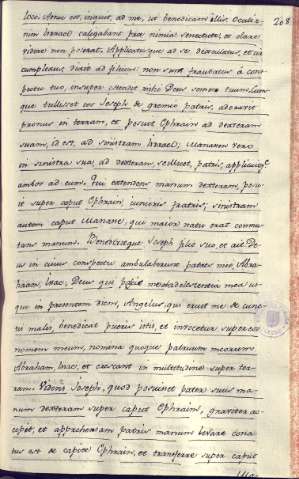 208
hoc loco, inquit, ad me, ut benedicam illis. Oculi e-
nim Israel caligabant prae nimia senectute, et clare
videre non poterat. Applicatosque ad se, deosculatus, et cir
cumplexus, dixit ad filium: non sum fraudatus a cons-
pectu tuo, insuper ostendit mihi Deus semen tuum. Cum-
que tulisset eos Joseph de gremio patris, adoravit
pronus in terram, et posuit Ephraim ad dexteram
suam, id est, ad sinistram Israel; Manassen vero
in sinistra sua, ad dexteram, scilicet, patris, applicuitq.
ambos ad eum. Qui extendens manum dexteram, posu-
it super caput Ephraim, iunioris fratris; sinistram
autem caput Manasse, qui maior natu erat commu
tans manus. Benedixitque Joseph filio suo, et ait: De-
us in cuius conspectu ambulaverunt patres mei, Abra-
ham, Isac; Deus qui pascit me ab adolescentia mea us-
que in praesentem diem, Angelus, qui eruit me de cunc-
tis malis, benedicat pueris istis, et invocetur super eos
nomen meum, nomina quoque patrum meorum
Abraham, Isac, et crescant in multitudinem super ter-
ram. Videns Joseph, quod posuisset pater suus ma-
num dexteram super caput Ephraim, graviter ac-
cepit, et apprehensam patris manum levare cona-
tus est de capite Ephraim, et transferre super caput